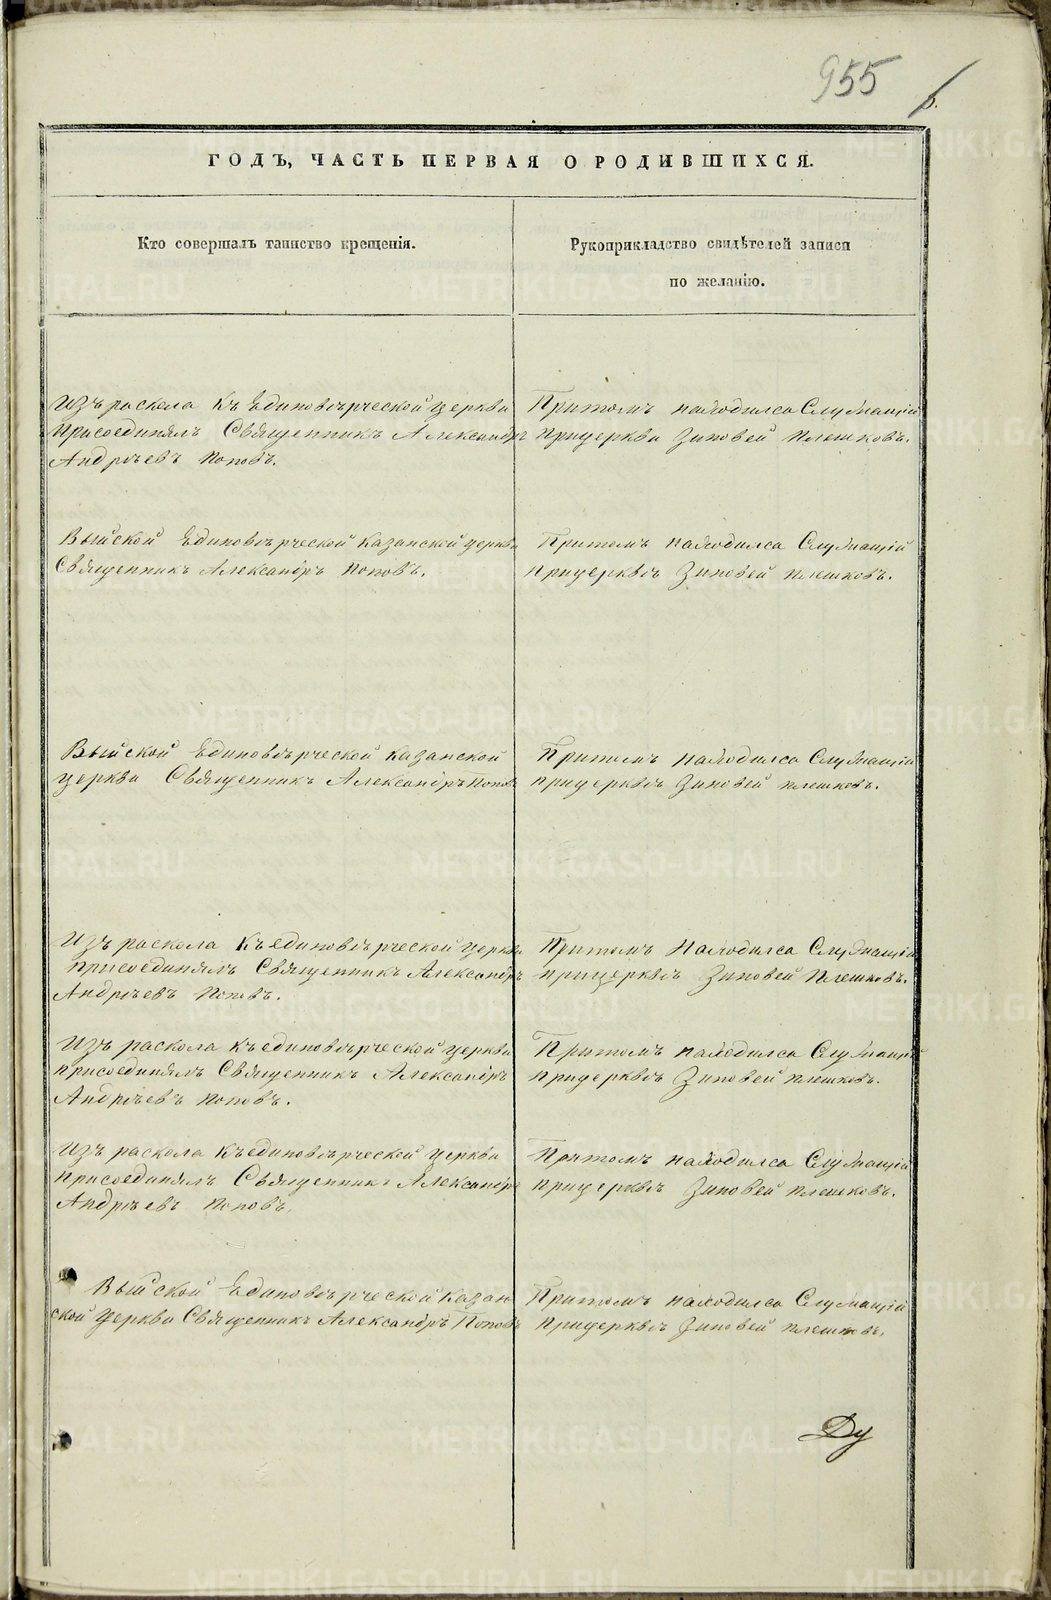 955
ГОДЪ, ЧАСТЬ ПЕРВАЯ О РОДИВШИХСЯ.
Кто совершалъ таинство крещенія.
Рукоприкладство свидѣтелей записи
по желанію.
Изъ раскола къ Единовѣрческой церкви
присоединялъ Священникъ Александръ
Андрѣевъ Поповъ.
Притомъ находился Служащій
прицерквѣ Зиновей Плешковъ.
Выйской Единовѣрческой Казанской церкви
Священникъ Александръ Поповъ.
Притомъ находился Служащій
прицерквѣ Зиновей Плешковъ.
Выйской Единовѣрческой Казанской
церкви Священникъ Александръ Поповъ
Притомъ находился Служащій
прицерквѣ Зиновей Плешковъ.
Изъ раскола къ единовѣрческой церкви
присоединялъ Священникъ Александръ
Андрѣевъ Поповъ.
Притомъ находился Служащій
прицерквѣ Зиновей Плешковъ.
Изъ раскола къ единовѣрческой церкви
присоединялъ Священникъ Александръ
Андрѣевъ Поповъ.
Притомъ находился Служащій
прицерквѣ Зиновей Плешковъ.
Изъ раскола къ единовѣрческой церкви
присоединялъ Священникъ Александръ
Андрѣевъ Поповъ.
Притомъ находился Служащій
прицерквѣ Зиновей Плешковъ.
Выйской Единовѣрческой Казан
ской церкви Священникъ Александръ Поповъ
Притомъ находился Служащій
прицерквѣ Зиновей Плешковъ.
Ду
METRIKI.GASO-URAL.RU